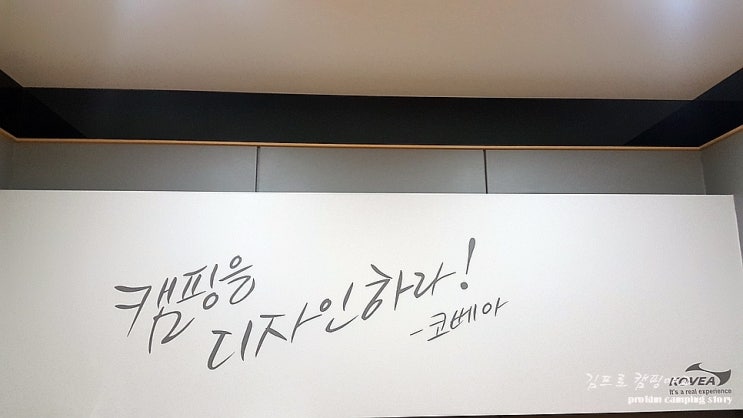 캠핑을
디자인하라!
-코베아
김프로 캠핑
KOVEA
It's a real experience
prokim camping story